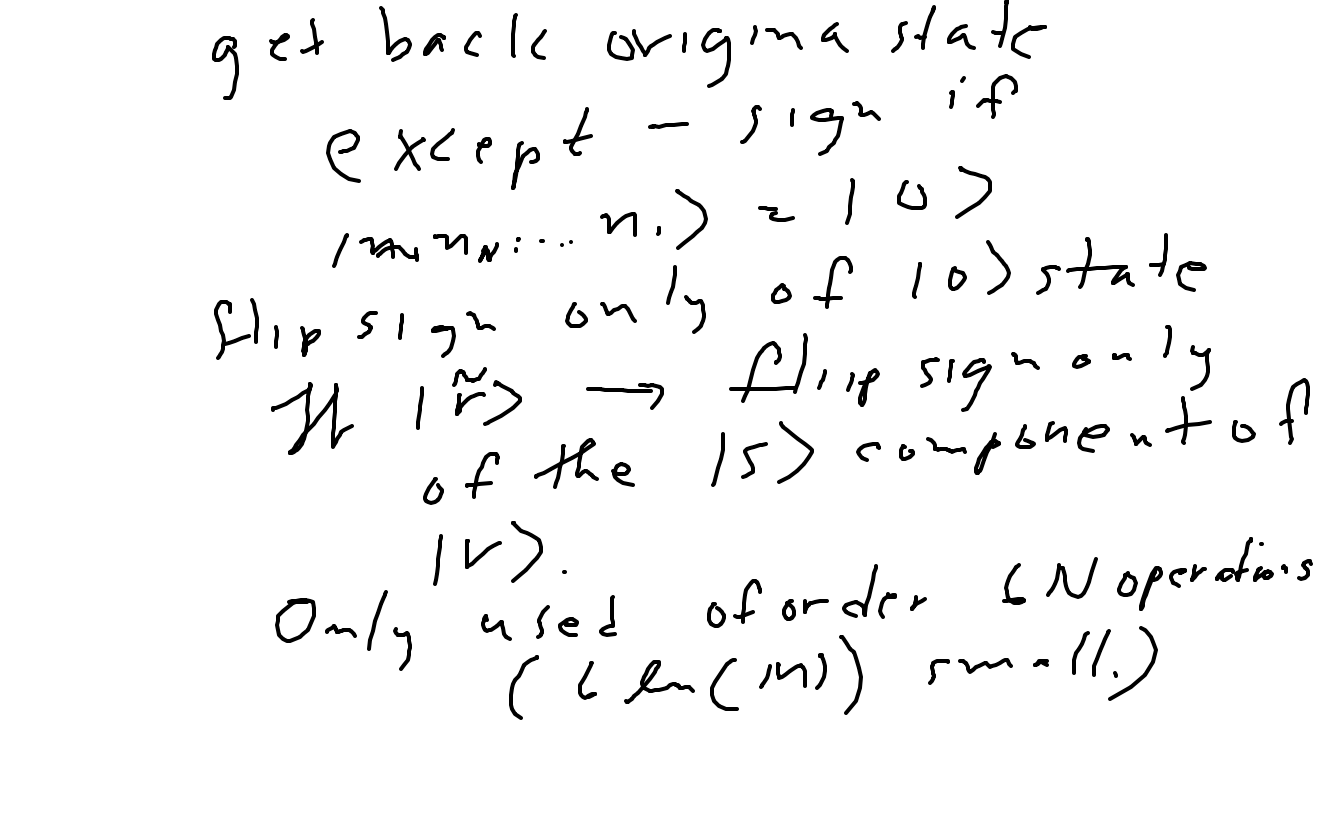 get back origina state
except - sign if
n_N ... n_1> = |0>
flip sign only of |0> state
H |r̃> → flip sign only
of the |s> component of
|r>.
Only used of order 6N operations
(6 ln(M)) small.)